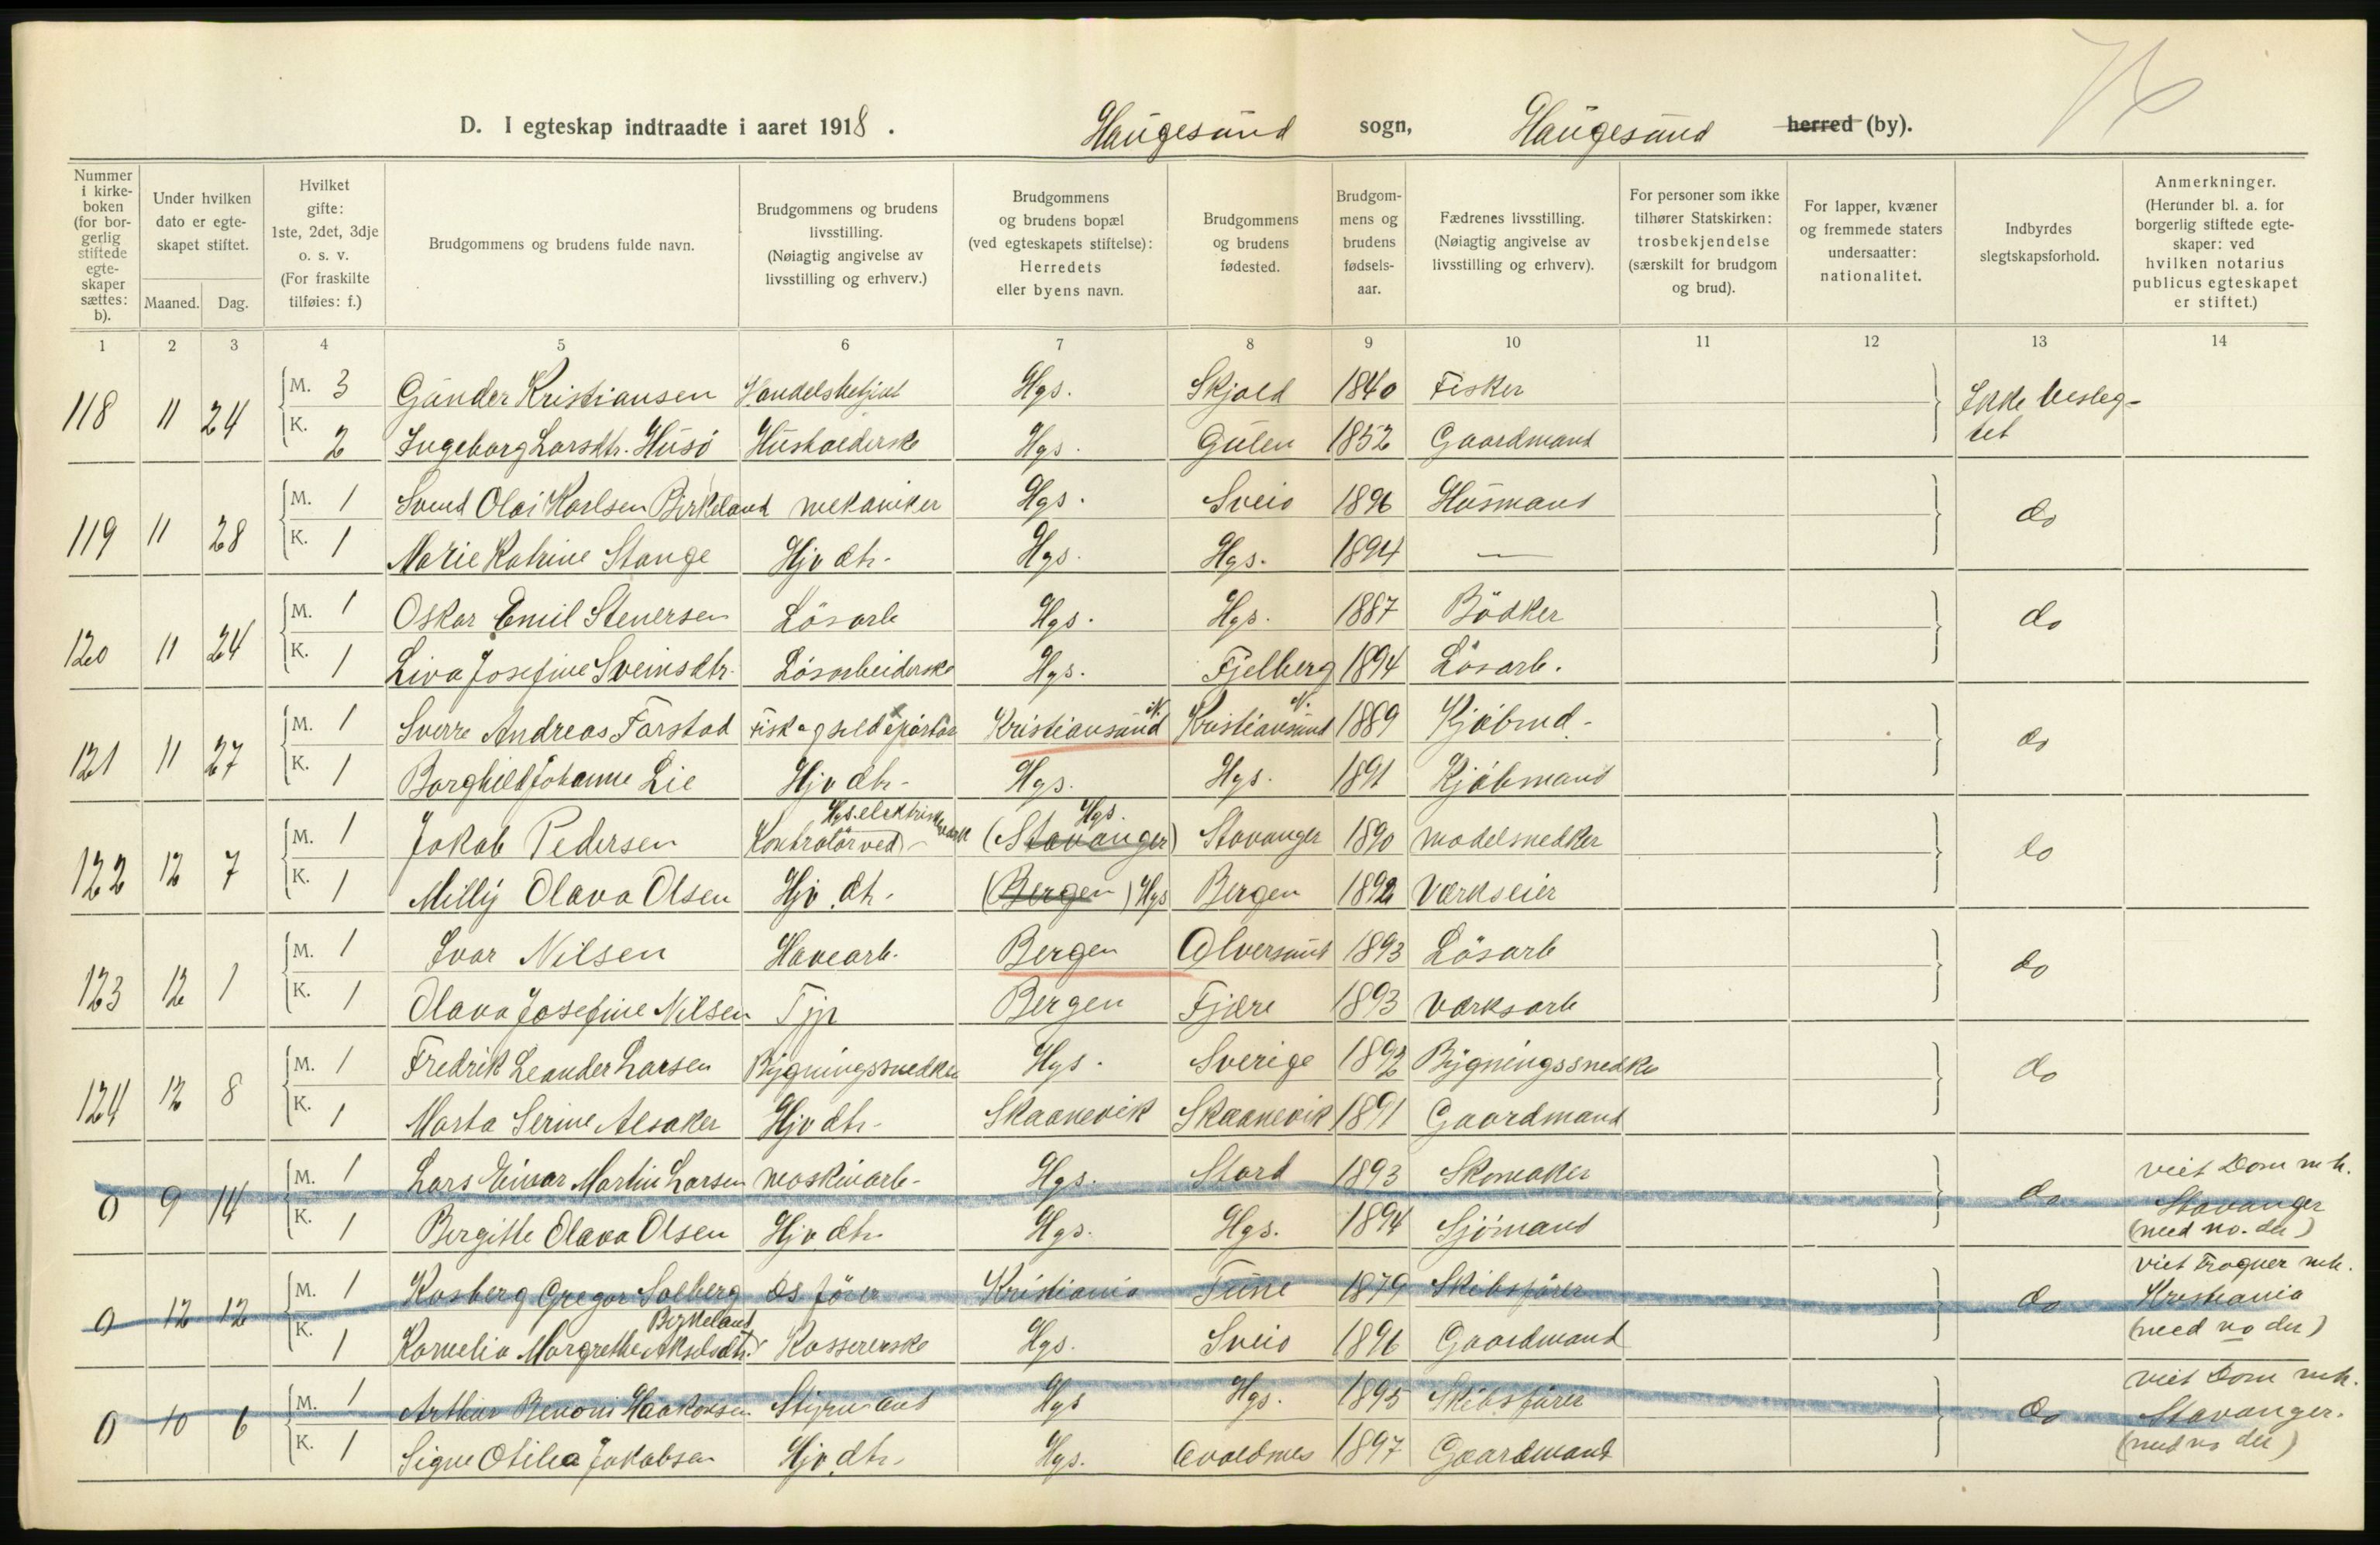 76
D. I egteskap indtraadte i aaret 1918. Haugesund sogn, Haugesund herred (by).
Nummer i kirke-boken (for bor-gerlig stiftede egte-skaper sættes: b).
Under hvilken dato er egte-skapet stiftet.
Maaned. Dag.
Hvilket gifte: 1ste, 2det, 3dje o. s. v. (For fraskilte tilføies: f.)
Brudgommens og brudens fulde navn.
Brudgommens og brudens livsstilling. (Nøiagtig angivelse av livsstilling og erhverv.)
Brudgommens og brudens bopæl (ved egteskapets stiftelse): Herredets eller byens navn.
Brudgommens og brudens fødested.
Brudgom-mens og brudens fødsels-aar.
Fædrenes livsstilling. (Nøiagtig angivelse av livsstilling og erhverv).
For personer som ikke tilhører Statskirken: trosbekjendelse (særskilt for brudgom og brud).
For lapper, kvæner og fremmede staters undersaatter: nationalitet.
Indbyrdes slegtskapsforhold.
Anmerkninger. (Herunder bl. a. for borgerlig stiftede egte-skaper: ved hvilken notarius publicus egteskapet er stiftet.)
1 2 3 4 5 6 7 8 9 10 11 12 13 14
118 11 24 M. 3 Gunder Kristiansen Handelsbetjent Hgs. Skjold 1840 Fisker Ikke besleg-
K. 2 Ingeborg Larsdtr. Husö Husholderske Hgs. Gulen 1852 Gaardmand tet
119 11 28 M. 1 Svend Olai Karlsen Birkeland mekaniker Hgs. Sveio 1896 Husmand do
K. 1 Marie Katrine Stange Hjv dtr. Hgs. Hgs. 1894 —
120 11 24 M. 1 Oskar Emil Stenersen Lösarb Hgs. Hgs. 1887 Bödker do
K. 1 Liva Josefine Sveinsdtr. Lösarbeiderske Hgs. Fjelberg 1894 Lösarb.
121 11 27 M. 1 Sverre Andreas Farstad Fisk og sild Kristiansund N. Kristiansund N. 1889 Kjöbmd. do
K. 1 Borghild Johanne Lie Hjv dtr. Hgs. Hgs. 1891 Kjöbmand
122 12 7 M. 1 Jakob Pedersen Kontrolör ved Hgs. elektriskverk (Stavanger) Hgs. Stavanger 1890 modelsnedker do
K. 1 Milly Olava Olsen Hjv. dtr. (Bergen) Hgs Bergen 1892 Værkseier
123 12 1 M. 1 Ivar Nilsen Havearb. Bergen Alversund 1893 Lösarb do
K. 1 Olava Josefine Nilsen Tjp Bergen Fjære 1893 Værksarb
124 12 8 M. 1 Fredrik Leander Larsen Bygningssnedker Hgs. Sverige 1892 Bygningssnedker do
K. 1 Marta Serine Alsaker Hjv dtr. Skaanevik Skaanevik 1891 Gaardmand
0 9 14 M. 1 Lars Einar Martin Larsen maskinarb. Hgs. Stord 1893 Skomaker do viet Dom mk.
K. 1 Bergitte Olava Olsen Hjv. dtr. Hgs. Hgs. 1894 Sjömand Stavanger (med no. der)
0 12 12 M. 1 Kasberg Gregor Solberg Ds förer Kristiania Tune 1879 Skibsförer do viet Frogner mk. Kristiania
K. 1 Kornelia Margrethe Akselsdtr. Birkeland Kassererske Hgs. Sveio 1896 Gaardmand (med no der)
0 10 6 M. 1 Arthur Benoni Haakonsen Styrmand Hgs Hgs. 1895 Skibsförer do viet Dom mk. Stavanger.
K. 1 Signe Otilia Jakobsen Hjv. dtr. Hgs. Avaldsnes 1897 Gaardmand (med no der)